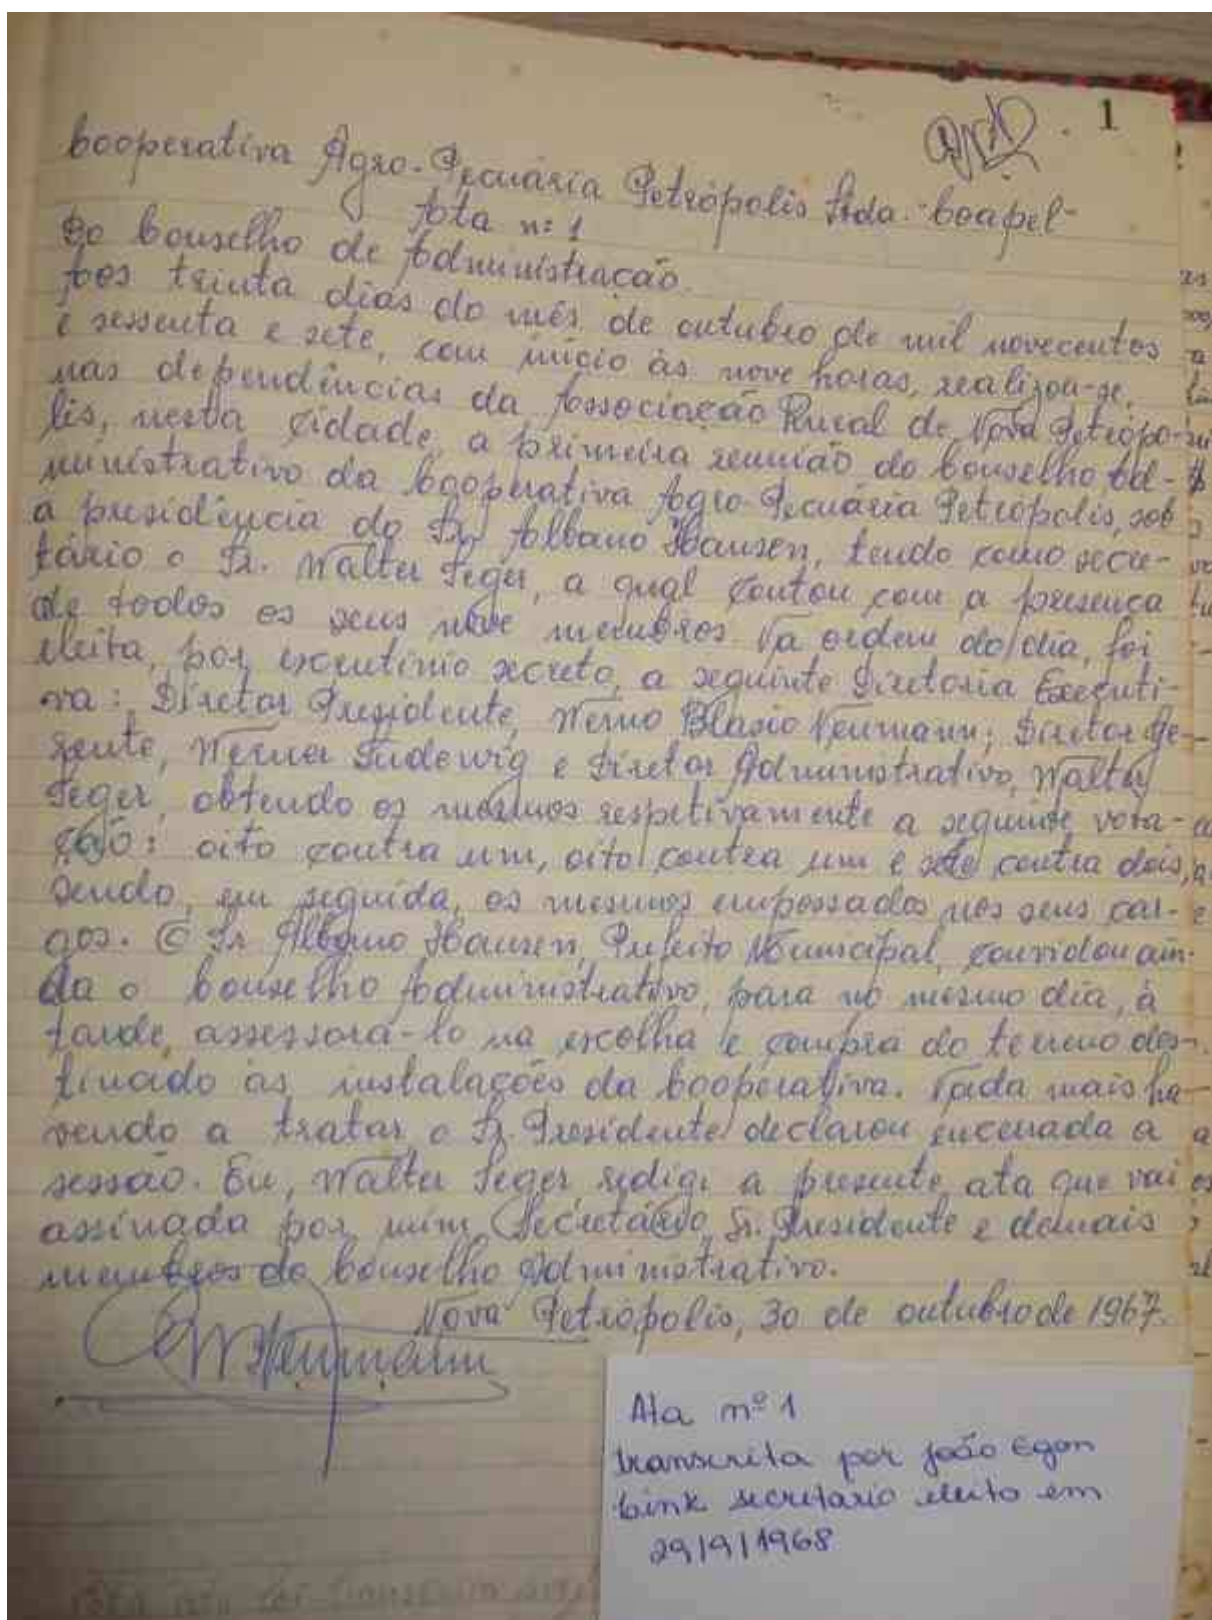 1
Cooperativa Agro-Pecuária Petrópolis Ltda. Coapel-
Ata nº 1
Do Conselho de Administração.
Aos trinta dias do mês de outubro de mil novecentos
e sessenta e sete, com início às nove horas, realizou-se,
nas dependências da Associação Rural de Nova Petrópo-
lis, nesta cidade, a primeira reunião do Conselho Ad-
ministrativo da Cooperativa Agro-Pecuária Petrópolis, sob
a presidência do Sr. Albano Hansen, tendo como secre-
tário o Sr. Walter Seger, a qual contou com a presença
de todos os seus nove membros. Na ordem do dia, foi
eleita, por escrutínio secreto, a seguinte Diretoria Executi-
va: Diretor Presidente, Werno Blasio Neumann; Diretor Ge-
rente, Werner Ludewig e Diretor Administrativo, Walter
Seger, obtendo os mesmos respetivamente a seguinte vota-
ção: oito contra um, oito contra um e sete contra dois,
sendo, em seguida, os mesmos empossados nos seus car-
gos. O Sr. Albano Hansen, Prefeito Municipal, convidou ain-
da o Conselho Administrativo, para no mesmo dia, à
tarde, assessorá-lo na escolha e compra do terreno des-
tinado às instalações da Cooperativa. Nada mais ha-
vendo a tratar, o Sr. Presidente declarou encerrada a
sessão. Eu, Walter Seger, redigi a presente ata que vai
assinada por mim, Secretário, Sr. Presidente e demais
membros do Conselho Administrativo.
Nova Petrópolis, 30 de outubro de 1967.
Neumann
Ata nº 1
transcrita por João Egon
Link secretario eleito em
29/9/1968